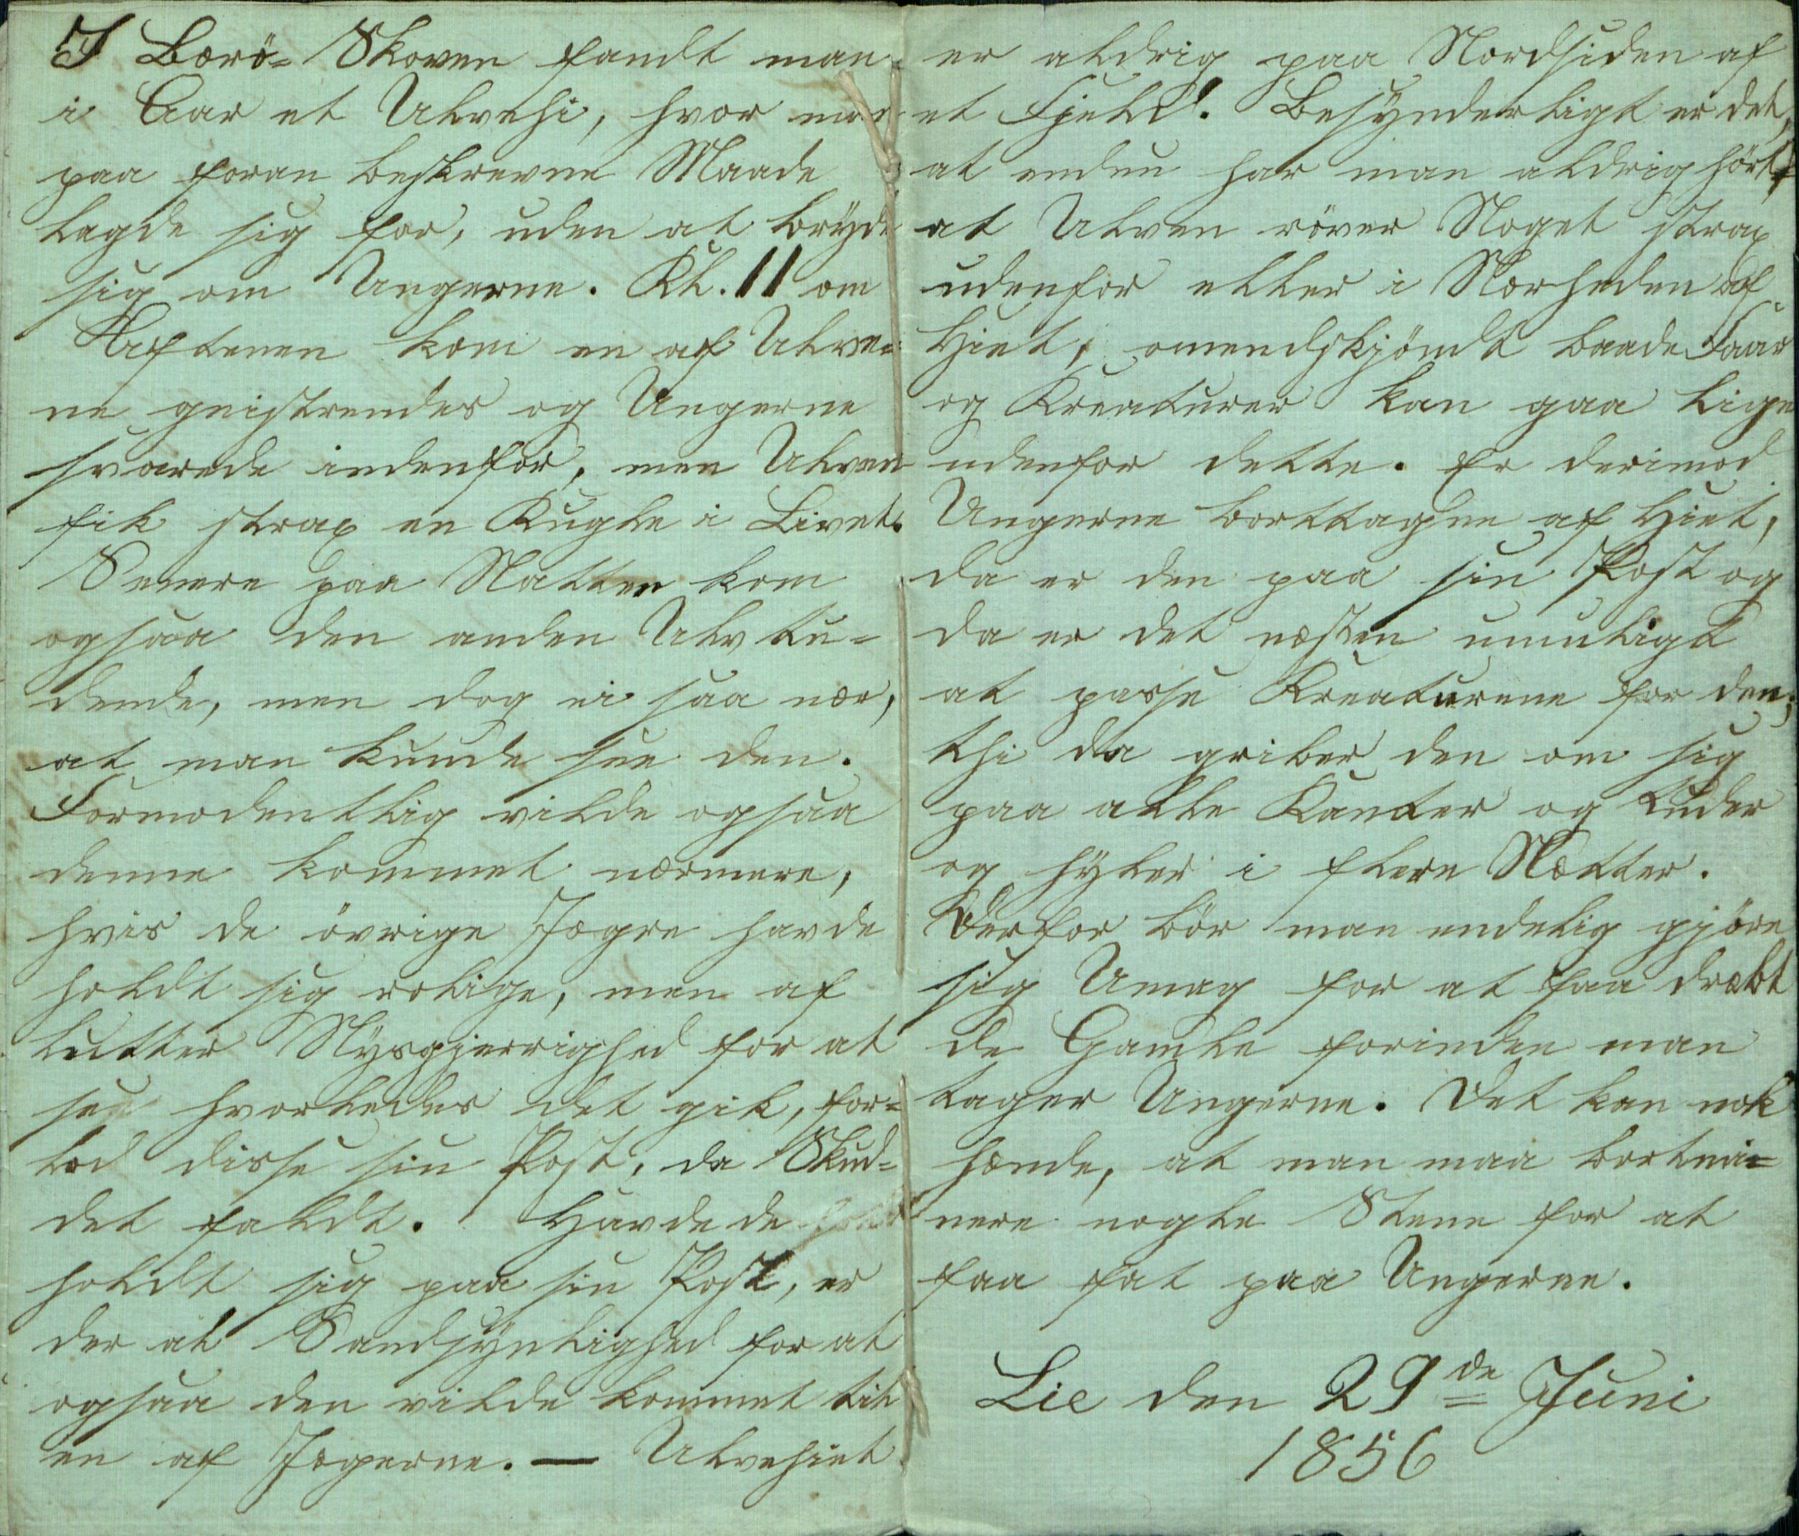 I Börö- Skoven fandt man
i Aar et Ulvehi, hvor man
paa foran beskrevne Maade
lagde sig for, uden at bryde
sig om Ungerne. Kl. 11 om
Aftenen kom en af Ulve-
ne gneistrendes og Ungerne
svarede indenfor, men Ulven
fik strax en Kugle i Livet.
Senere paa Natten kom
ogsaa den anden Ulv tu-
dende, men dog ei saa nær,
at man kunde see den.
Formodentlig vilde ogsaa
denne kommet nærmere,
hvis de övrige Jægre havde
holdt sig rolige, men af
lutter Nysgjerrighed for at
see hvorledes det gik, for-
lod disse sin Post, da Skud-
det faldt. Havde de
holdt sig paa sin Post, er
der al Sandsynlighed for at
ogsaa den vilde kommet til
en af Jægerne. — Ulvehiet
er aldrig paa Nordsiden af
et Fjeld. Besynderligt er det,
at endnu har man aldrig hört,
at Ulven röver Noget strax
udenfor eller i Nærheden af
Hiet, omendskjöndt baade Faar
og Kreaturer kan gaa lige
udenfor dette. Er derimod
Ungerne borttagne af Hiet,
da er den paa sin Post og
da er det næsten umuligt
at passe Kreaturene for den;
thi da griber den om sig
paa alle Kanter og tuder
og hyler i flere Nætter.
Derfor bör man endelig gjöre
sig Umag for at faa dræbt
de Gamle forinden man
tager Ungerne. Det kan nok
hænde, at man maa bortmi-
nere nogle Stene for at
faa fat paa Ungerne.
Lie den 29de Juni
1856